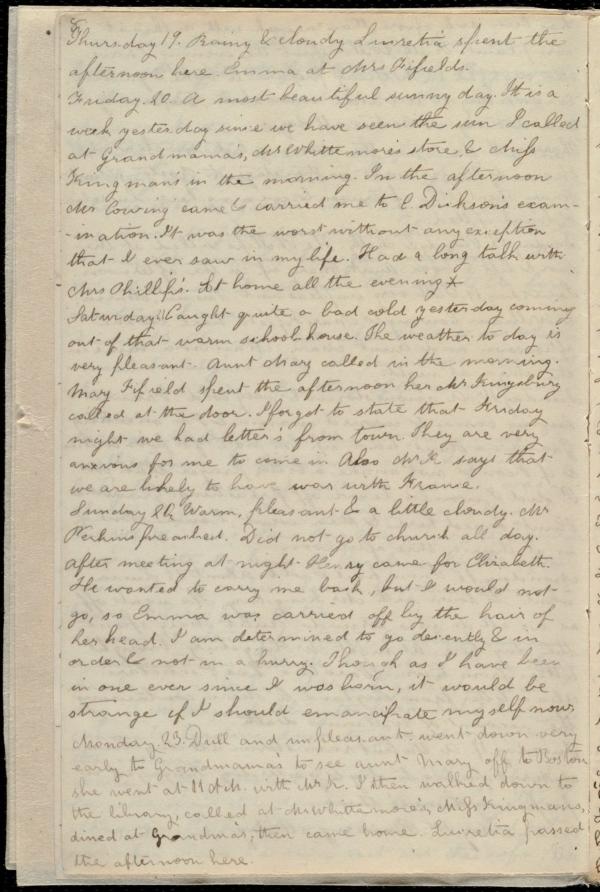 Thursday 19. Rainy & cloudy Lucretia spent the
afternoon here. Emma at Mrs Fifields.
Friday 20. A most beautiful sunny day. It is a
week yesterday since we have seen the sun I called
at Grandmama's, Mr Whittemore's store, & Miss
Kingman's in the morning. In the afternoon
Mr Cowing came & carried me to C. Dickson's exam-
-ination. It was the worst without any exception
that I ever saw in my life. Had a long talk with
Mrs Phillip's. At home all the evening
Saturday Caught quite a bad cold yesterday coming
out of that warm school-house. The weather to day is
very pleasant. Aunt Mary called in the morning.
Mary Fifield spent the afternoon her Mr Kingsbury
called at the door. I forgot to state that Friday
night we had letter's from town. They are very
anxious for me to come in Also Mr K says that
we are likely to have war with France.
Sunday 22, Warm, pleasant & a little cloudy. Mr
Perkins preached. Did not go to church all day.
After meeting at night Henry came for Elizabeth.
He wanted to carry me back, but I would not
go, so Emma was carried off by the hair of
her head. I am determined to go decently & in
order & not in a hurry. Though as I have been
in one ever since I was born, it would be
strange if I should emancipate myself now
Monday 23. Dull and unpleasant. went down very
early to Grandmama's to see aunt Mary off to Boston
she went at 11 A.M. with Mr K. I then walked down to
the library, called at Mr Whittemore's, Miss Kingmans,
dined at Grandma's, then came home. Lucretia passed
the afternoon here.